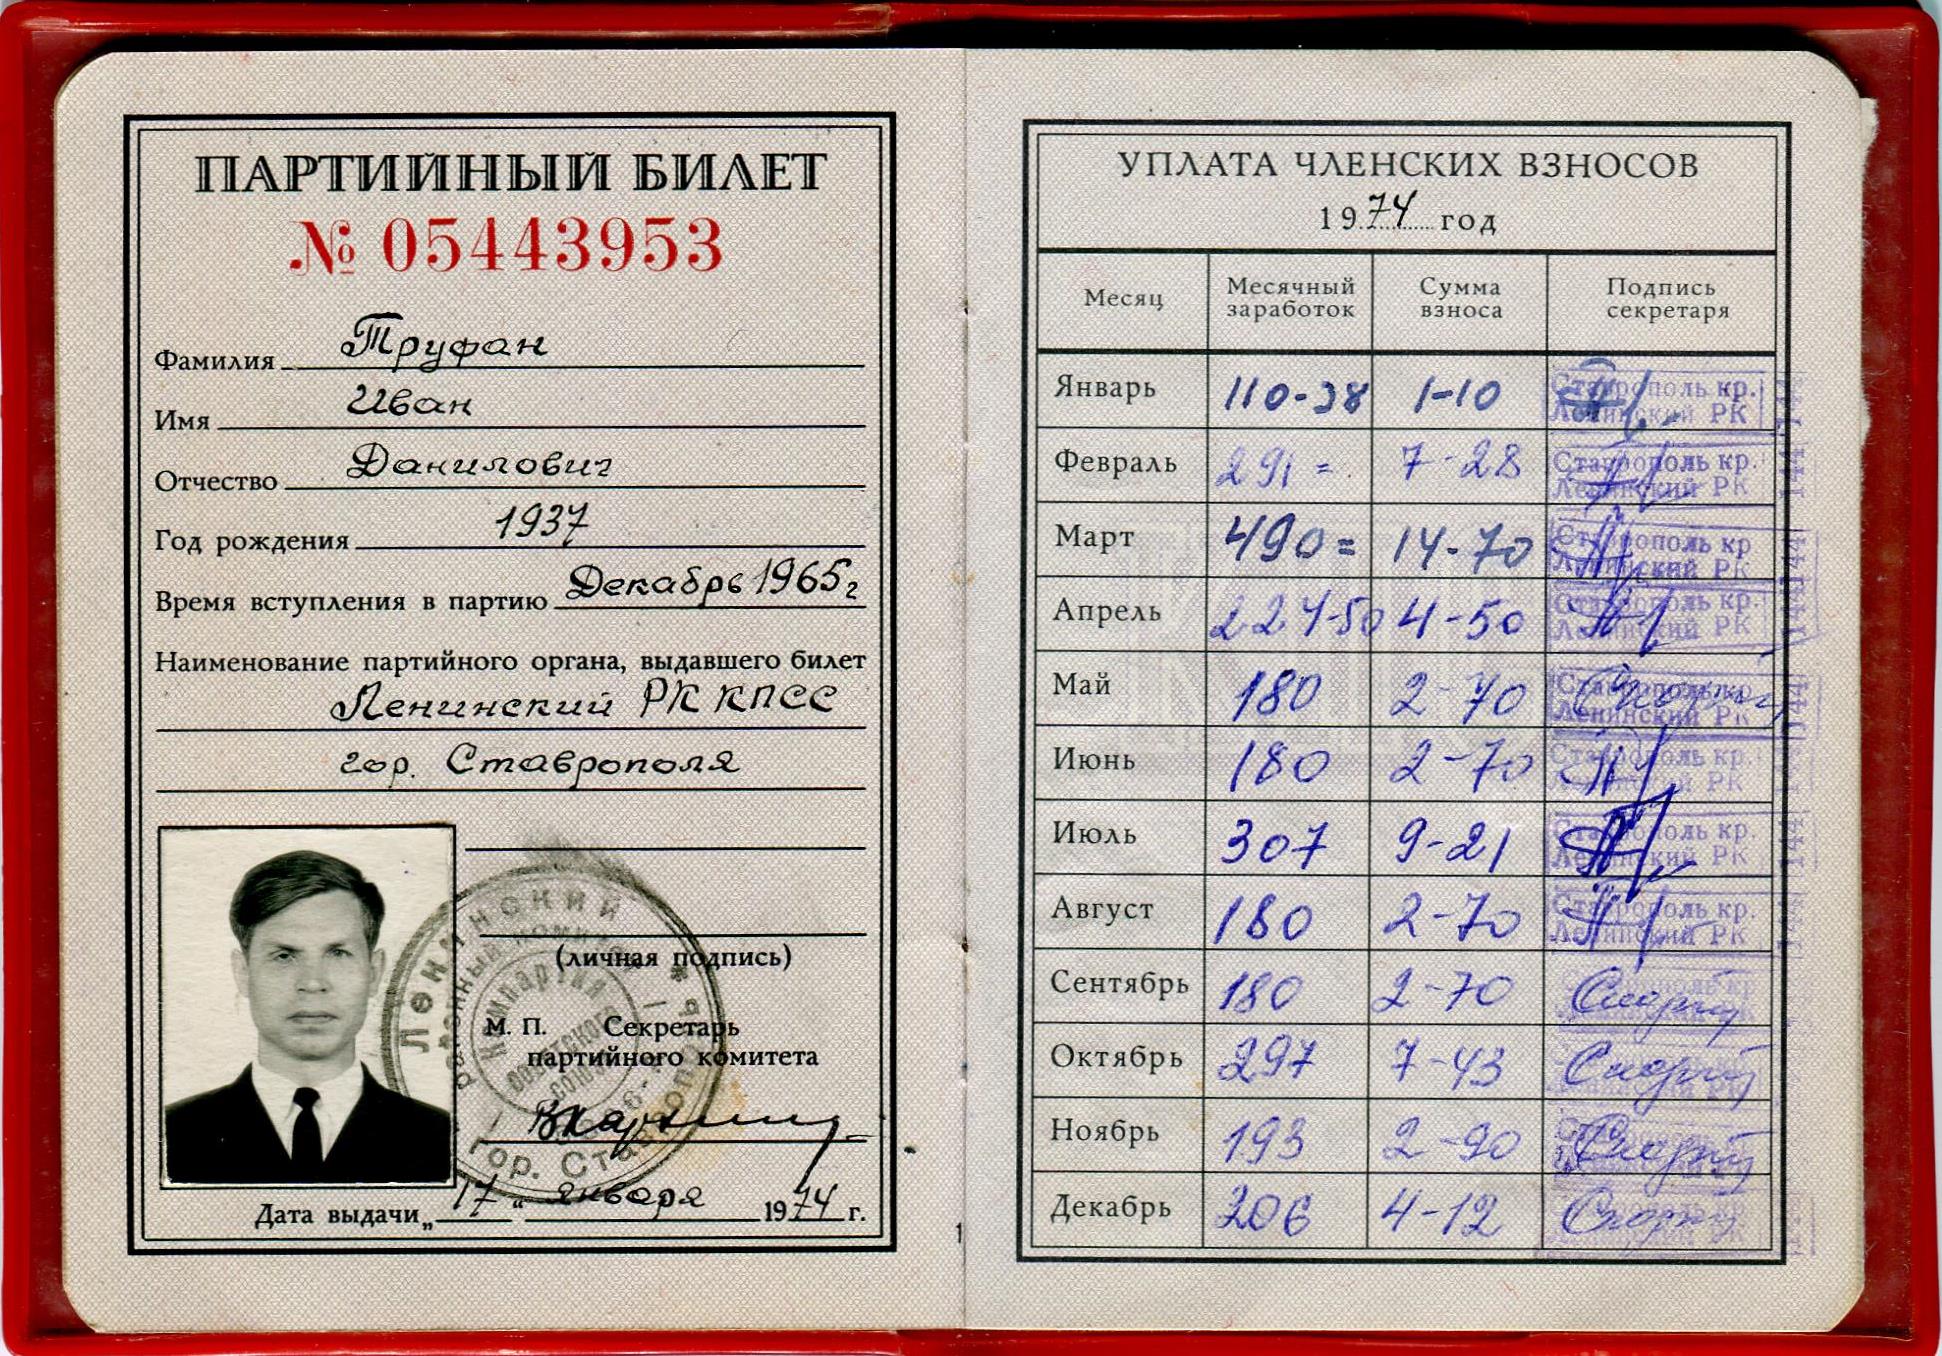 ПАРТИЙНЫЙ БИЛЕТ
№ 05443953
Фамилия Труфан
Имя Иван
Отчество Данилович
Год рождения 1937
Время вступления в партию Декабрь 1965г
Наименование партийного органа, выдавшего билет
Ленинский РК КПСС
гор. Ставрополя
(личная подпись)
М. П. Секретарь
партийного комитета
Дата выдачи „17“ января 1974 г.
Ленинский
гор. Ставрополь
Компартия
Советского
Союза
1
УПЛАТА ЧЛЕНСКИХ ВЗНОСОВ
1974 год
Месяц Месячный заработок Сумма взноса Подпись секретаря
Январь 110-38 1-10 Ставрополь кр. Ленинский РК
Февраль 291= 7-28 Ставрополь кр. Ленинский РК
Март 490= 14-70 Ставрополь кр Ленинский РК
Апрель 224-50 4-50 Ставрополь кр. Ленинский РК
Май 180 2-70 Ставрополь кр. Ленинский РК
Июнь 180 2-70 Ставрополь кр. Ленинский РК
Июль 307 9-21 Ставрополь кр. Ленинский РК
Август 180 2-70 Ставрополь кр. Ленинский РК
Сентябрь 180 2-70
Октябрь 297 7-43
Ноябрь 193 2-90
Декабрь 206 4-12